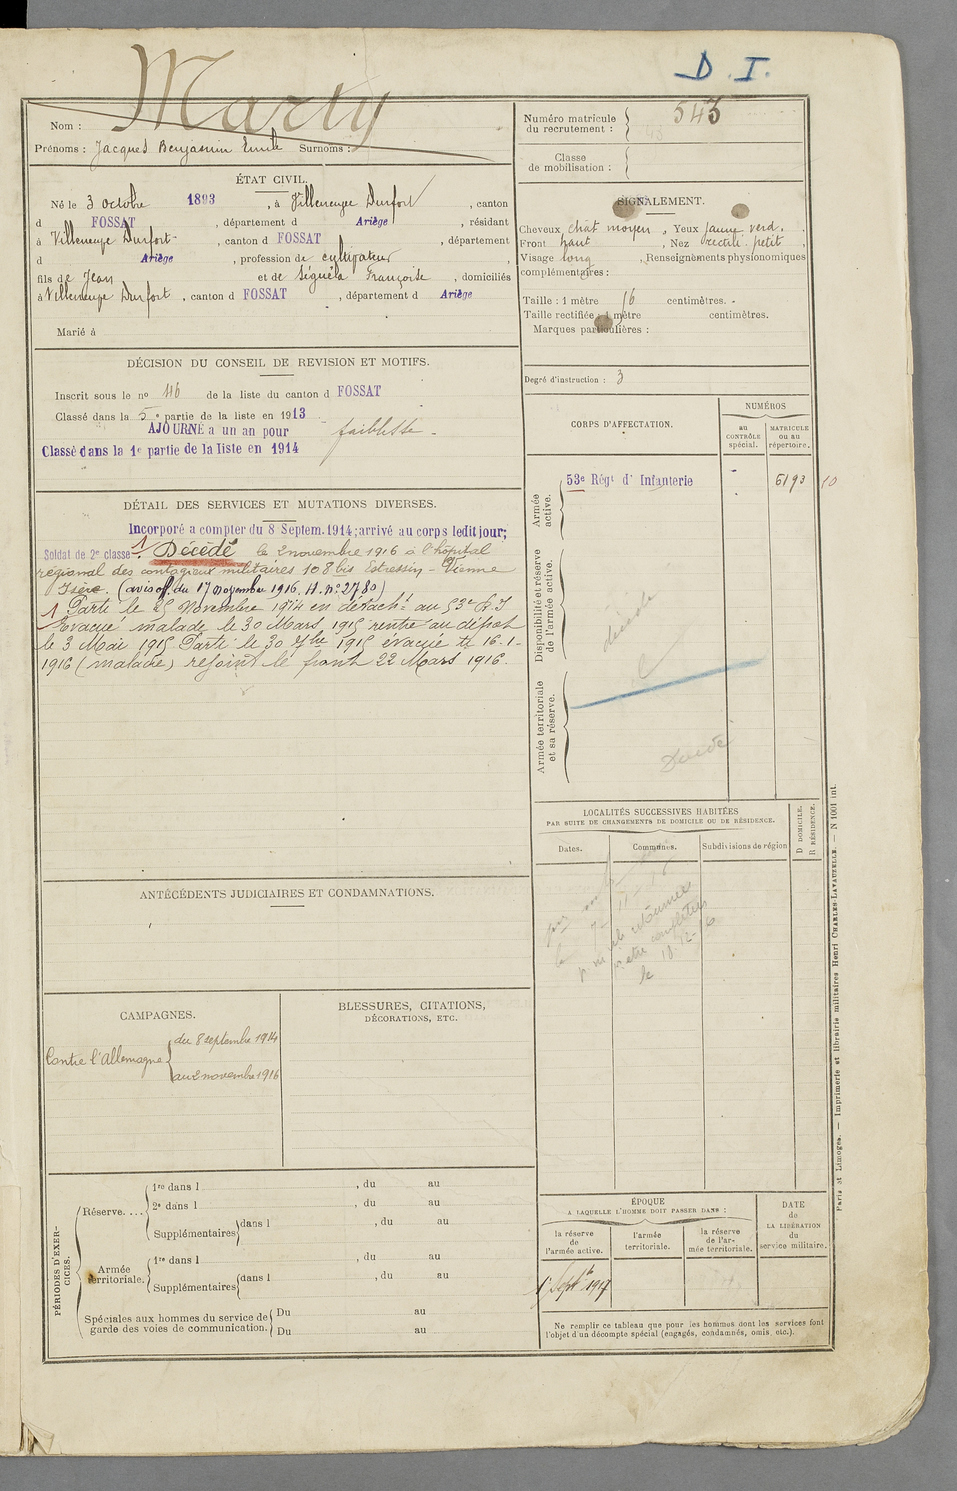 D. I.
Nom : Marty
Prénoms : Jacques Benjamin Emile Surnoms :
Numéro matricule du recrutement : 543
Classe de mobilisation :
ÉTAT CIVIL.
Né le 3 octobre 1893, à Villeneuve Durfort, canton
d FOSSAT, département d Ariège, résidant
à Villeneuve Durfort, canton d FOSSAT, département
d Ariège, profession de cultivateur,
fils de Jean et de Séguéla Françoise, domiciliés
à Villeneuve Durfort, canton d FOSSAT, département d Ariège
Marié à
SIGNALEMENT.
Cheveux chat moyen, Yeux jaune verd.,
Front haut, Nez rectili. petit,
Visage long, Renseignements physionomiques
complémentaires :
Taille : 1 mètre 56 centimètres.
Taille rectifiée : 1 mètre centimètres.
Marques particulières :
Degré d'instruction : 3
DÉCISION DU CONSEIL DE REVISION ET MOTIFS.
Inscrit sous le no 46 de la liste du canton d FOSSAT
Classé dans la 5e partie de la liste en 1913
AJOURNÉ a un an pour faiblesse.
Classé dans la 1e partie de la liste en 1914
CORPS D'AFFECTATION.
NUMÉROS
au CONTRÔLE spécial.
MATRICULE ou au répertoire.
Armée active.
53e Régt d' Infanterie 6193
Disponibilité et réserve de l'armée active.
décédé
Armée territoriale et sa réserve.
Décédé
DÉTAIL DES SERVICES ET MUTATIONS DIVERSES.
Incorporé a compter du 8 Septem. 1914; arrivé au corps ledit jour;
Soldat de 2e classe 1 Décédé le 2 novembre 1916 à l'hôpital
régional des contagieux militaires 108 bis Estressin - Vienne
Isère. (avis off. du 17 novembre 1916. H. no 2780)
1 Parti le 25 Novembre 1914 en détacht au 53e R.I
Evacué malade le 30 Mars 1915 rentre au dépôt
le 3 Mai 1915 Parti le 30 7bre 1915 évacué le 16-1-
1916 (malade) rejoint le front 22 Mars 1916.
LOCALITÉS SUCCESSIVES HABITÉES
PAR SUITE DE CHANGEMENTS DE DOMICILE OU DE RÉSIDENCE.
Dates.
Communes.
Subdivisions de région
D DOMICILE.
R RÉSIDENCE.
ANTÉCÉDENTS JUDICIAIRES ET CONDAMNATIONS.
CAMPAGNES.
Contre l'Allemagne
du 8 septembre 1914
au 2 novembre 1916
BLESSURES, CITATIONS,
DÉCORATIONS, ETC.
PÉRIODES D'EXERCICES.
Réserve....
1re dans l , du au
2e dans l , du au
Supplémentaires dans l , du au
Armée territoriale.
1re dans l , du au
Supplémentaires dans l , du au
Spéciales aux hommes du service de garde des voies de communication.
Du au
Du au
ÉPOQUE
A LAQUELLE L'HOMME DOIT PASSER DANS :
la réserve de l'armée active.
l'armée territoriale.
la réserve de l'armée territoriale.
DATE de LA LIBÉRATION du service militaire.
1er Septbre 1917
Ne remplir ce tableau que pour les hommes dont les services font
l'objet d'un décompte spécial (engagés, condamnés, omis, etc.).
Paris et Limoges. — Imprimerie et librairie militaires Henri CHARLES-LAVAUZELLE. — N 1001 int.